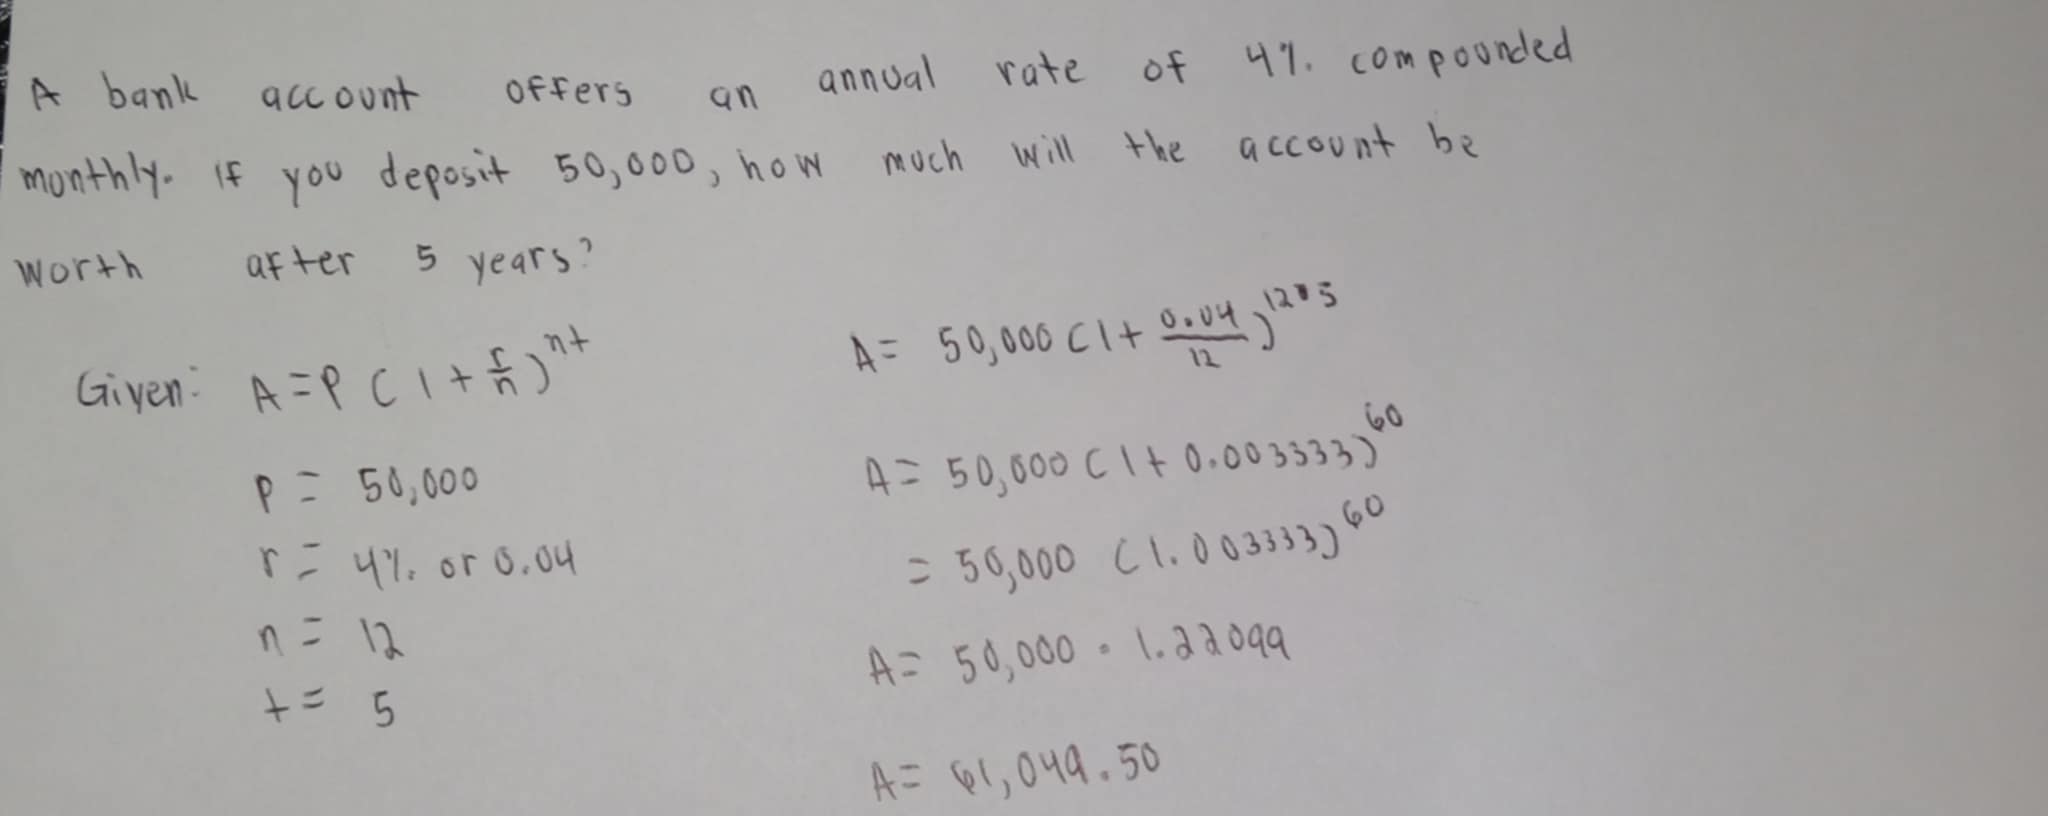 A bank account offers an annual rate of 4% compounded
monthly. If you deposit 50,000, how much will the account be
worth after 5 years?
Given: A=P(1+r/n)^nt
P = 50,000
r = 4% or 0.04
n = 12
t = 5
A= 50,000(1+0.04/12)^12•5
A= 50,000(1+0.003333)^60
= 50,000 (1.003333)^60
A= 50,000 • 1.22099
A= 61,049.50